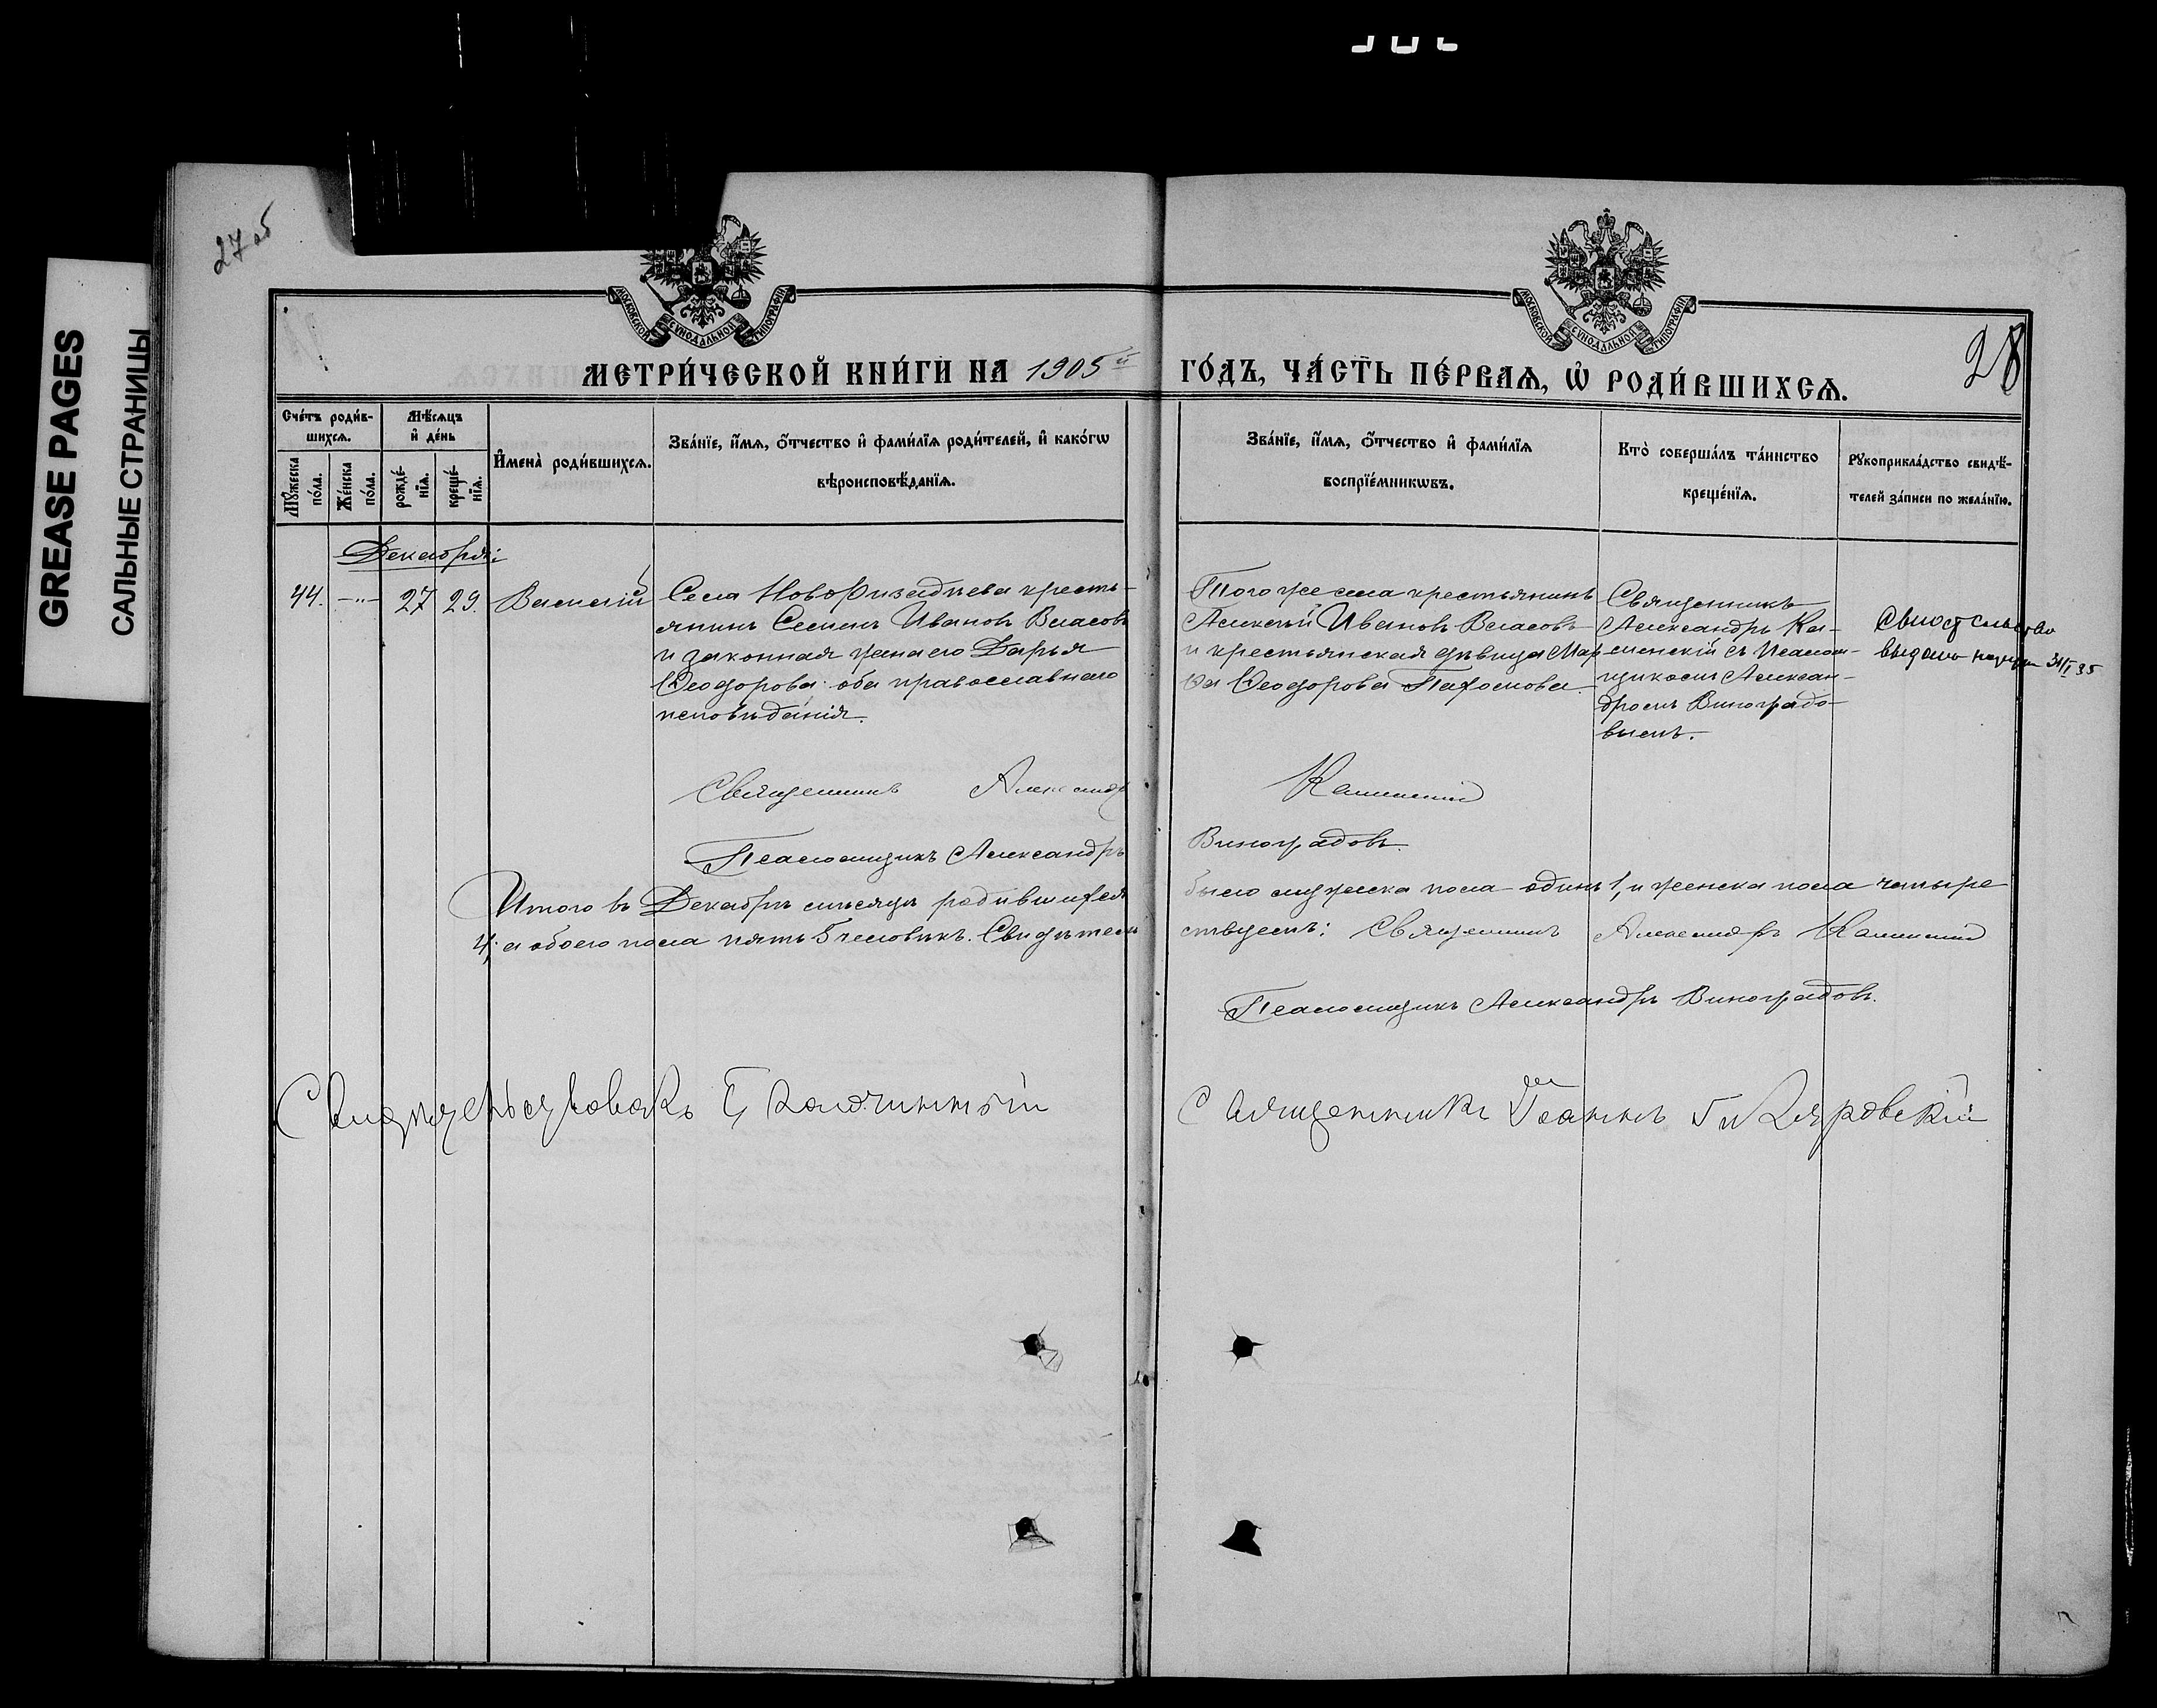 GREASE PAGES
САЛЬНЫЕ СТРАНИЦЫ
27 об
28
МОСКОВСКОЙ СѴНОДАЛЬНОЙ ТИПОГРАФІИ
МОСКОВСКОЙ СѴНОДАЛЬНОЙ ТИПОГРАФІИ
МЕТРИ́ЧЕСКОЙ КНИ́ГИ НА 1905й ГО́ДЪ, ЧА́СТЬ ПЕ́РВАѦ, Ѡ҆ РОДИ́ВШИХСѦ.
Сче́тъ роди́в-
шихсѧ.
Мꙋ́жеска по́ла.
Же́нска по́ла.
Мѣ́сѧцъ
и҆ де́нь
рожде́-
нїѧ.
креще́-
нїѧ.
И҆мена̀ роди́вшихсѧ.
Зва́нїе, и҆́мѧ, ѻ҆́тчество и҆ фами́лїѧ роди́телей, и҆ како́гѡ
вѣроисповѣ́данїѧ.
Зва́нїе, и҆́мѧ, ѻ҆́тчество и҆ фами́лїѧ
воспрїе́мникѡвъ.
Кто̀ соверша́лъ та́инство
креще́нїѧ.
Рꙋкоприкла́дство свидѣ́-
телей за́писи по жела́нїю.
Декабрь:
44. -"- 27 29. Василій
Села крестья-
янинъ Семенъ Ивановъ Власовъ
и законная жена его Дарья
Ѳеодорова: оба православнаго
исповѣданія.
Того же села крестьянинъ
Алексѣй Ивановъ Власовъ
и крестьянская дѣвица Мар-
ѳа Ѳеодорова Пахомова.
Священникъ
Александръ Ка-
менскій съ Псалом-
щикомъ Алексан-
дромъ Виноградо-
вымъ.
выдано 31/I 35
Священникъ Александръ Каменскій
Псаломщикъ Александръ Виноградовъ.
Итого въ Декабрѣ мѣсяцѣ родившихся было мужеска пола одинъ 1, и женска пола четыре
4; а обоего пола пять 5 человѣкъ. Свидѣтель-
ствуемъ: Священникъ Александръ Каменскій
Псаломщикъ Александръ Виноградовъ.
Свидѣтельствовалъ Благочинный Священникъ Іоаннъ